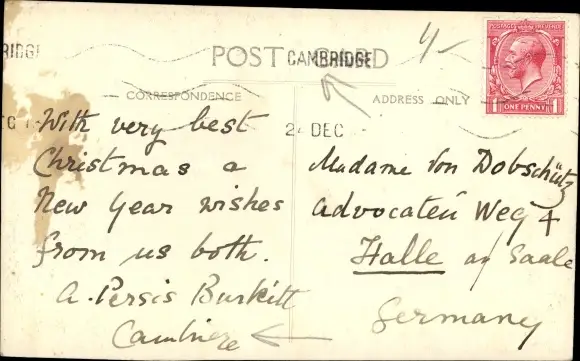 4/-
CAMBRIDGE
POST CARD
CORRESPONDENCE
ADDRESS ONLY
POSTAGE REVENUE
ONE PENNY
1 1
2 DEC
With very best
Christmas &
New Year wishes
from us both.
A. Persis Burkitt
Madame von Dobschütz
Advocaten Weg 4
Halle a/ Saale
Germany